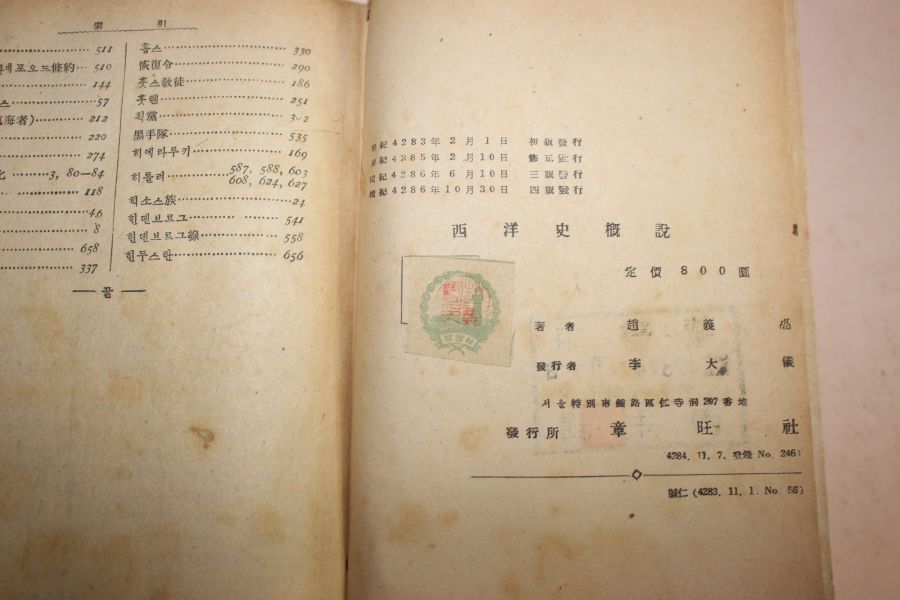 索 引
511
포오드條約 510
144
스 57
海者) 212
220
274
化 3, 80—84
118
46
8
658
337
흡스 330
恢復令 290
훗스敎徒 186
훗텐 251
휙黨
黑手隊 535
히에라루키 169
히틀러 587, 588, 603
608, 624, 627
힉소스族 24
힌덴브르그 541
힌덴브르그線 558
힌두스탄 656
끝
檀紀 4283年 2月 1日 初版發行
檀紀 4285年 2月 10日 修正發行
檀紀 4286年 6月 10日 三版發行
檀紀 4286年 10月 30日 四版發行
西洋史槪說
定價 800圜
著者 趙義卨
發行者 李大儀
서울特別市鍾路區仁寺洞207番地
發行所 章旺社
4284. 11. 7. 登錄 No. 246)
誠仁 (4283. 11. 1. No. 56)